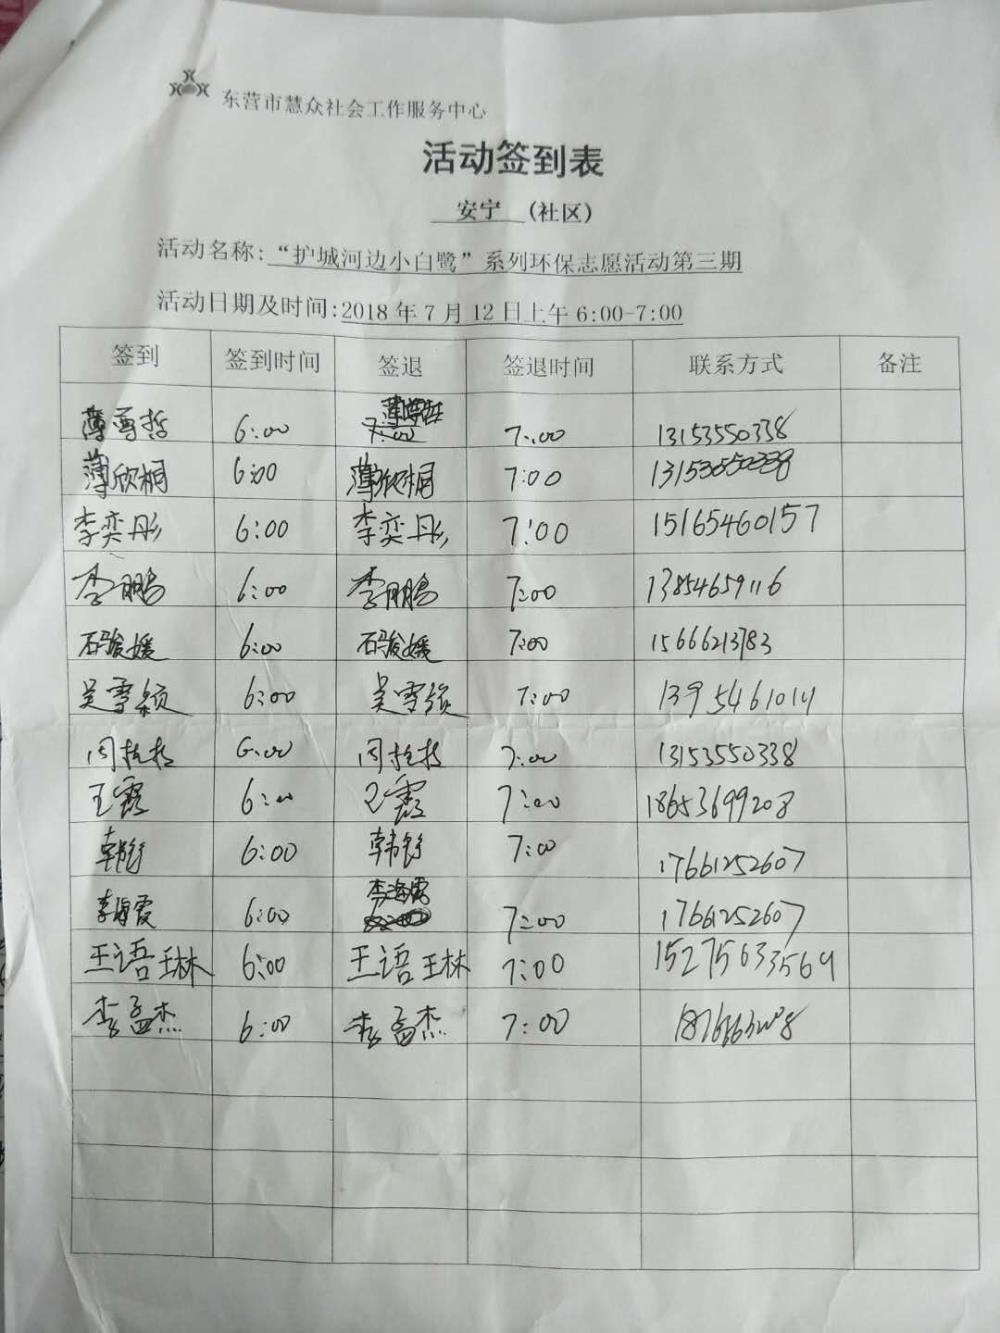 东营市慧众社会工作服务中心
活动签到表
安宁 (社区)
活动名称:“护城河边小白鹭”系列环保志愿活动第三期
活动日期及时间:2018年7月12日上午6:00-7:00
签到 签到时间 签退 签退时间 联系方式 备注
薄尊哲 6:00 薄尊哲 7:00 13153550338
薄欣桐 6:00 薄欣桐 7:00 13153550338
李奕彤 6:00 李奕彤 7:00 15165460157
李鹏 6:00 李鹏 7:00 13854659116
石骏媛 6:00 石骏媛 7:00 15666213783
吴雪颖 6:00 吴雪颖 7:00
6:00 7:00 13153550338
王霞 6:00 王霞 7:00 18653699208
韩舒 6:00 韩舒 7:00 17661252607
李海霞 6:00 李海霞 7:00 17661252607
王语琳 6:00 王语琳 7:00 15275633564
李孟杰 6:00 李孟杰 7:00